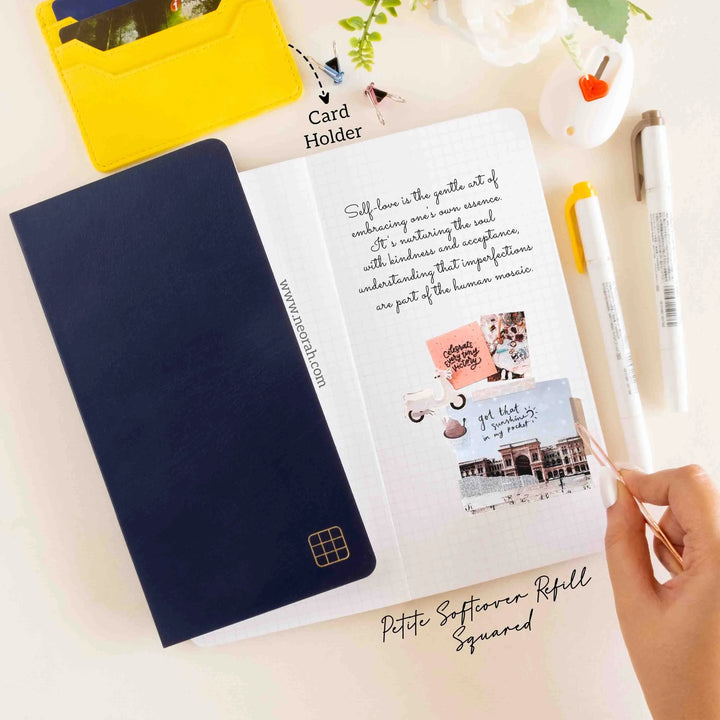 Card
Holder
Self-love is the gentle art of
embracing one's own essence.
It's nurturing the soul
with kindness and acceptance,
understanding that imperfections
are part of the human mosaic.
www.neorah.com
Celebrate
every tiny
victory
got that
sunshine
in my pocket
Petite Softcover Refill
Squared